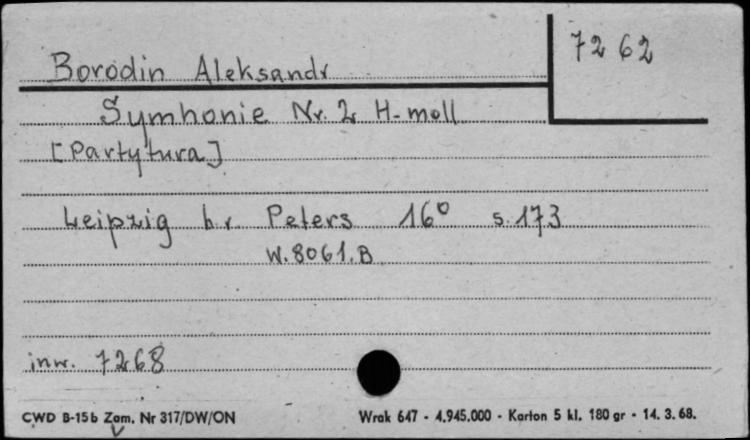 7262
Borodin Aleksandr
Symhonie Nr. 2 H-moll
[Partytura]
Leipzig b.r. Peters 16° s. 173
W. 8061. B
inw. 7268
CWD B-15b Zam. Nr 317/DW/ON Wrak 647 - 4.945.000 - Karton 5 kl. 180 gr - 14. 3. 68.